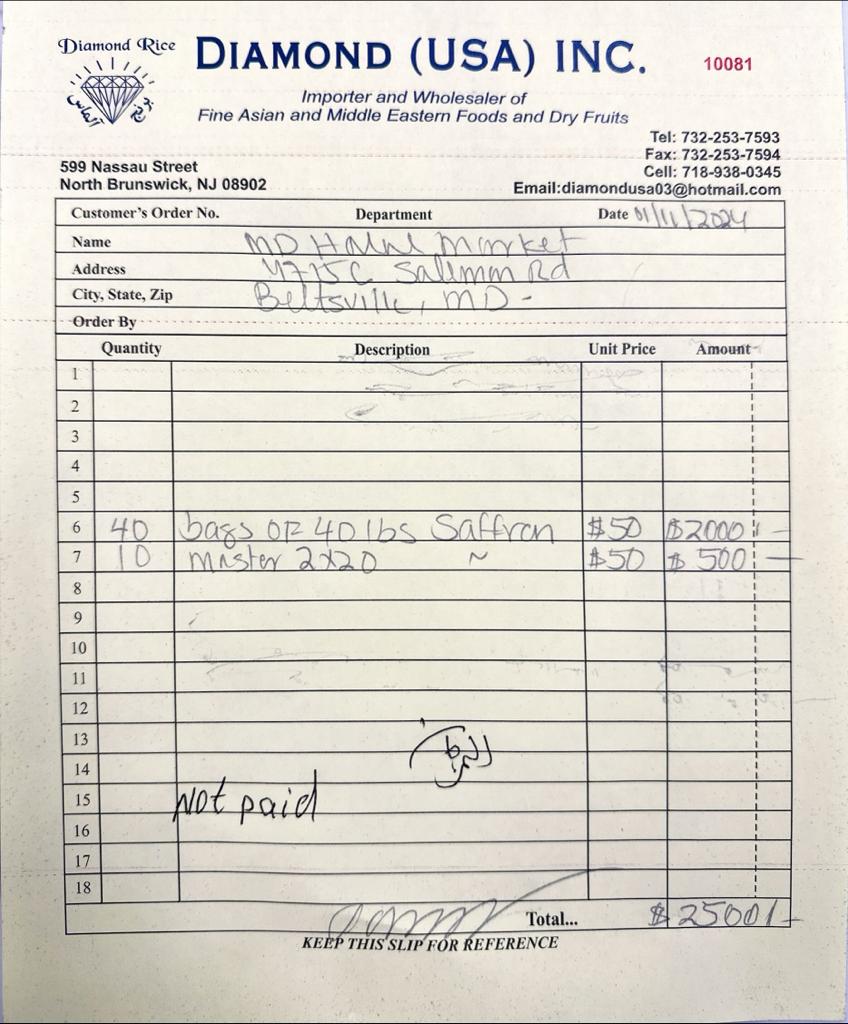 Diamond Rice
DIAMOND (USA) INC.
10081
Importer and Wholesaler of
Fine Asian and Middle Eastern Foods and Dry Fruits
Tel: 732-253-7593
Fax: 732-253-7594
Cell: 718-938-0345
Email:diamondusa03@hotmail.com
599 Nassau Street
North Brunswick, NJ 08902
Customer's Order No. Department Date 01/11/2024
Name MD Halal Market
Address 4715C Sallmm Rd
City, State, Zip Beltsville, MD -
Order By
Quantity Description Unit Price Amount
1
2
3
4
5
6 40 bags OF 40 lbs Saffron $50 $2000/-
7 10 master 2x20 ~ $50 $ 500/-
8
9
10
11
12
13
14
15 Not paid
16
17
18
Total... $ 2500/-
KEEP THIS SLIP FOR REFERENCE